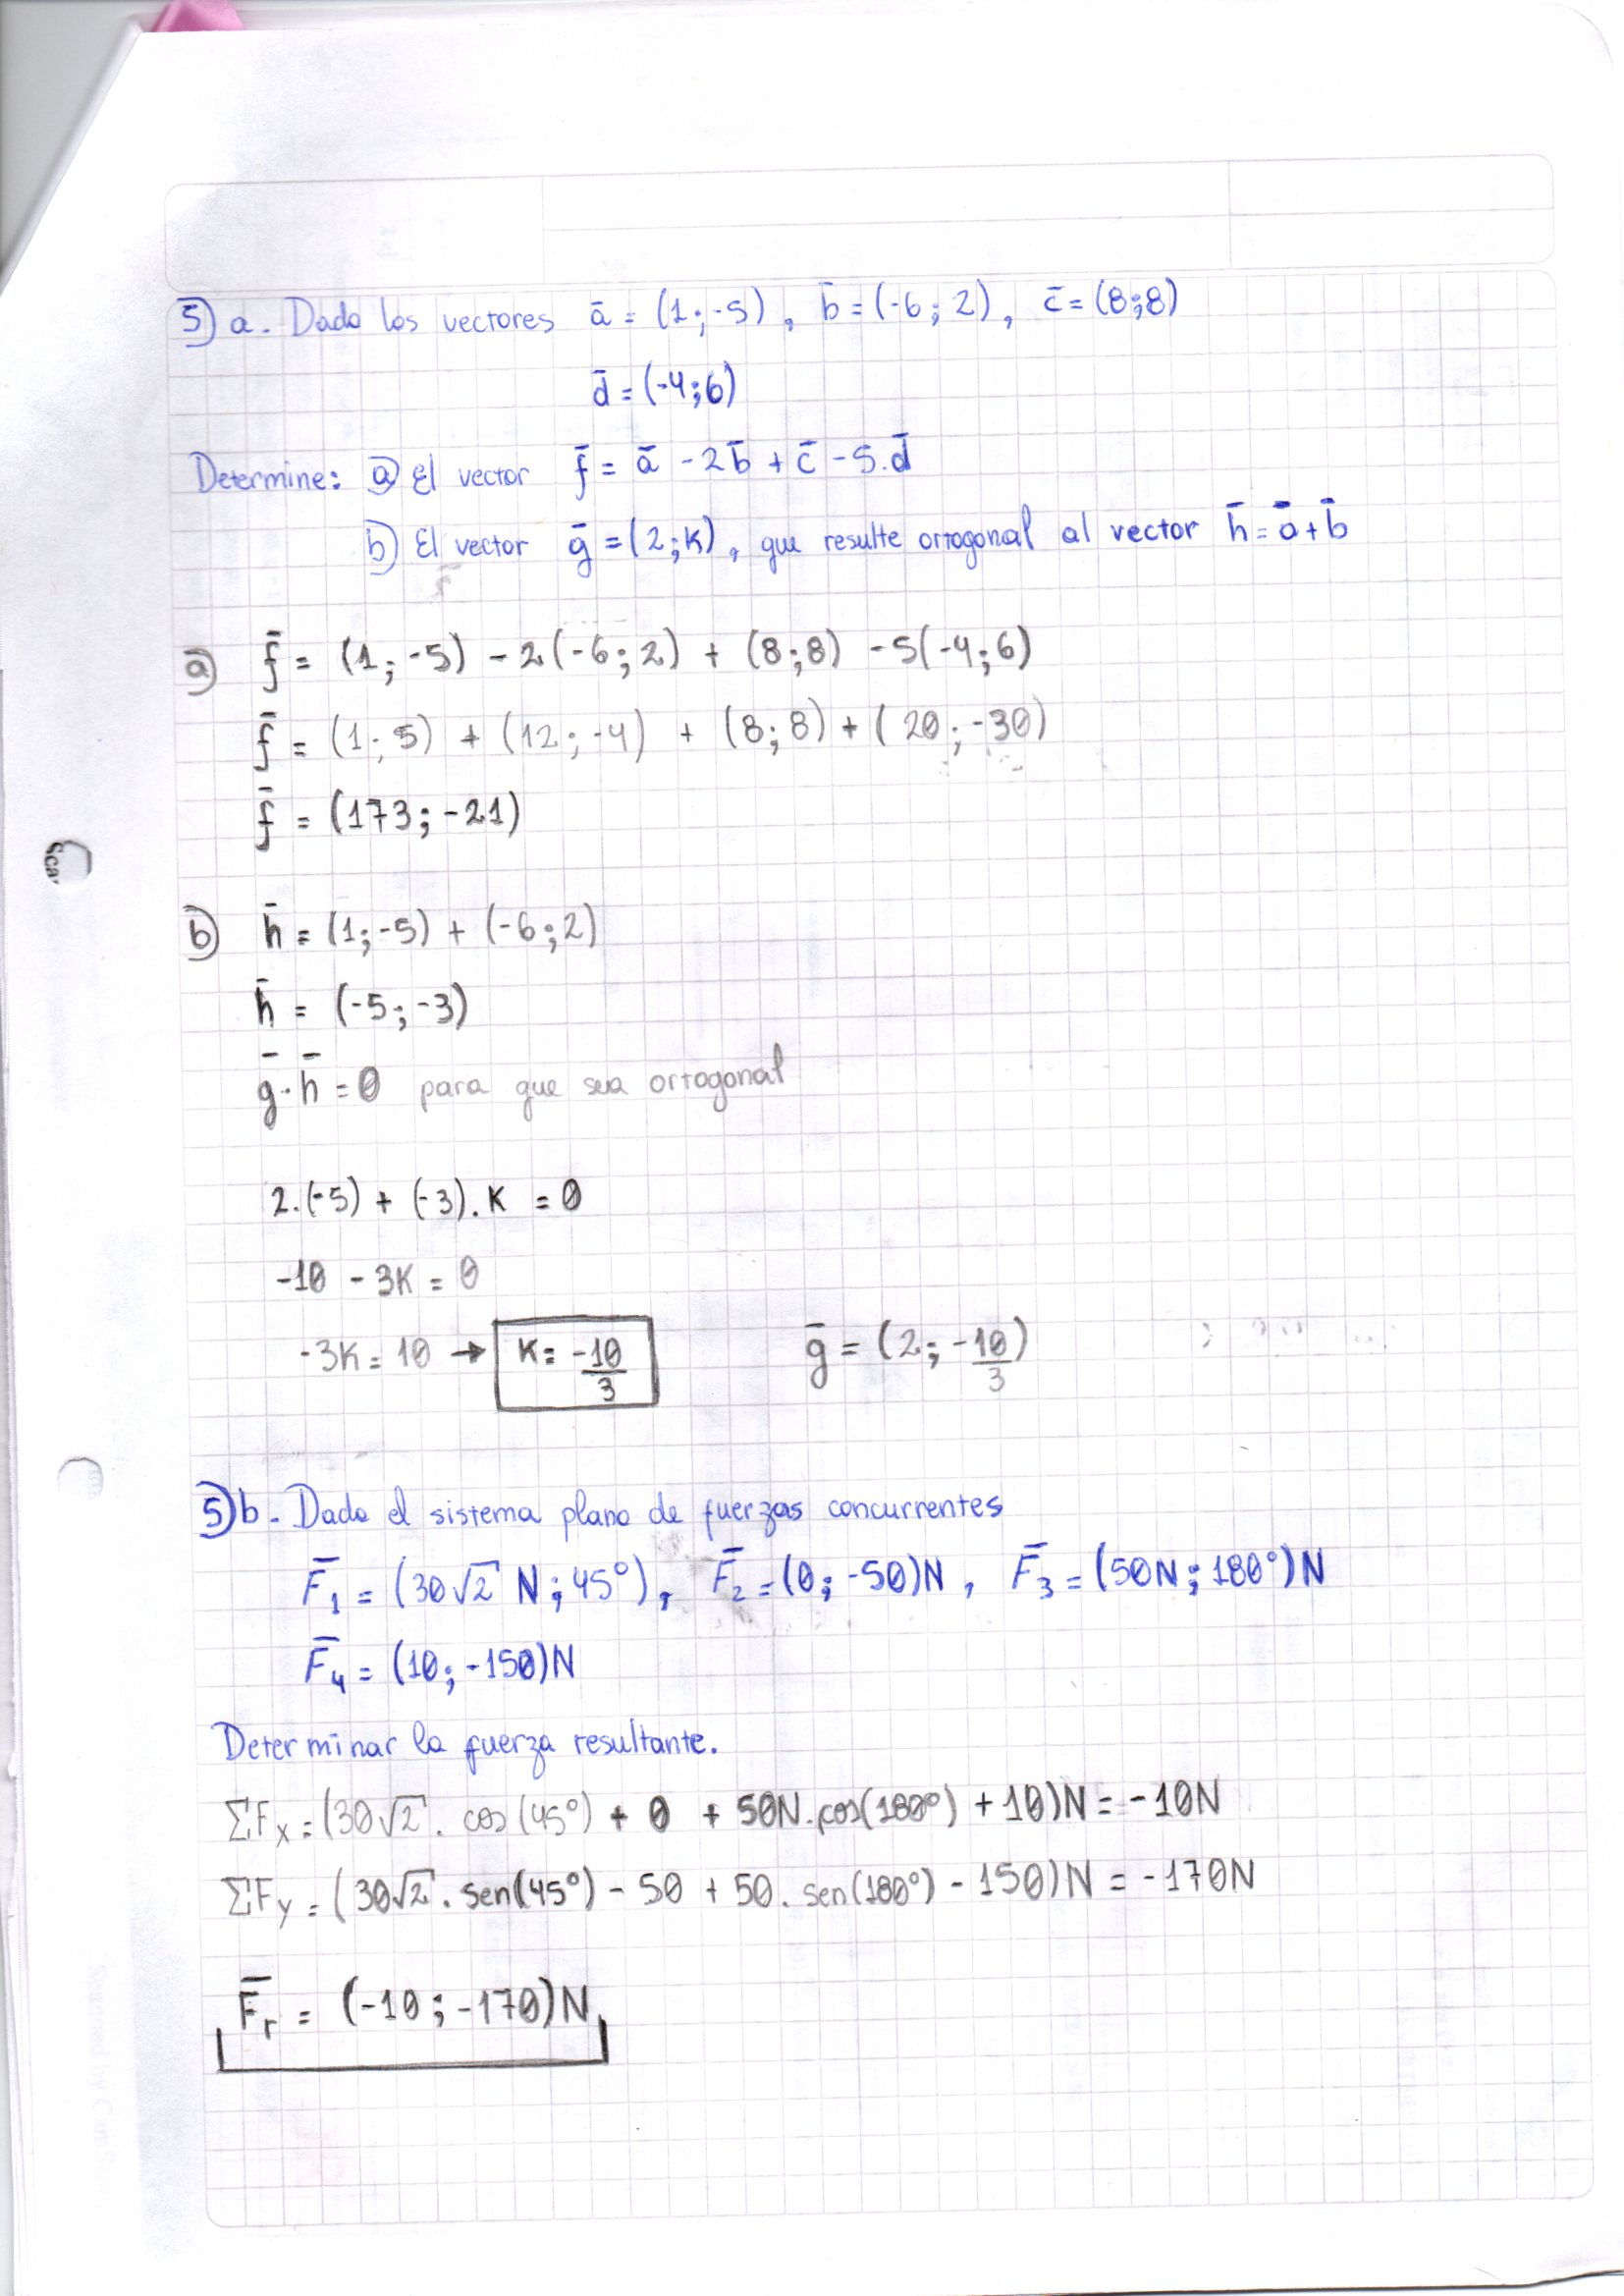 5) a. Dado los vectores ā = (1;-5), b̄ = (-6; 2), c̄ = (8;8)
d̄ = (-4;6)
Determine: a) El vector f̄ = ā - 2b̄ + c̄ - 5.d̄
b) El vector ḡ = (2;K), que resulte ortogonal al vector h̄ = ā + b̄
a) f̄ = (1; -5) - 2(-6; 2) + (8;8) - 5(-4;6)
f̄ = (1; 5) + (12; -4) + (8; 8) + (20; -30)
f̄ = (173; -21)
b) h̄ = (1;-5) + (-6;2)
h̄ = (-5; -3)
ḡ·h̄ = 0 para que sea ortogonal
2.(-5) + (-3).K = 0
-10 - 3K = 0
-3K = 10 → K = -10/3 ḡ = (2; -10/3)
5) b. Dado el sistema plano de fuerzas concurrentes
F̄1 = (30√2 N; 45°), F̄2 = (0; -50)N, F̄3 = (50N; 180°)N
F̄4 = (10; -150)N
Determinar la fuerza resultante.
ΣFx = (30√2 . cos(45°) + 0 + 50N.cos(180°) + 10)N = -10N
ΣFy = (30√2 . sen(45°) - 50 + 50. sen(180°) - 150)N = -170N
F̄r = (-10; -170)N